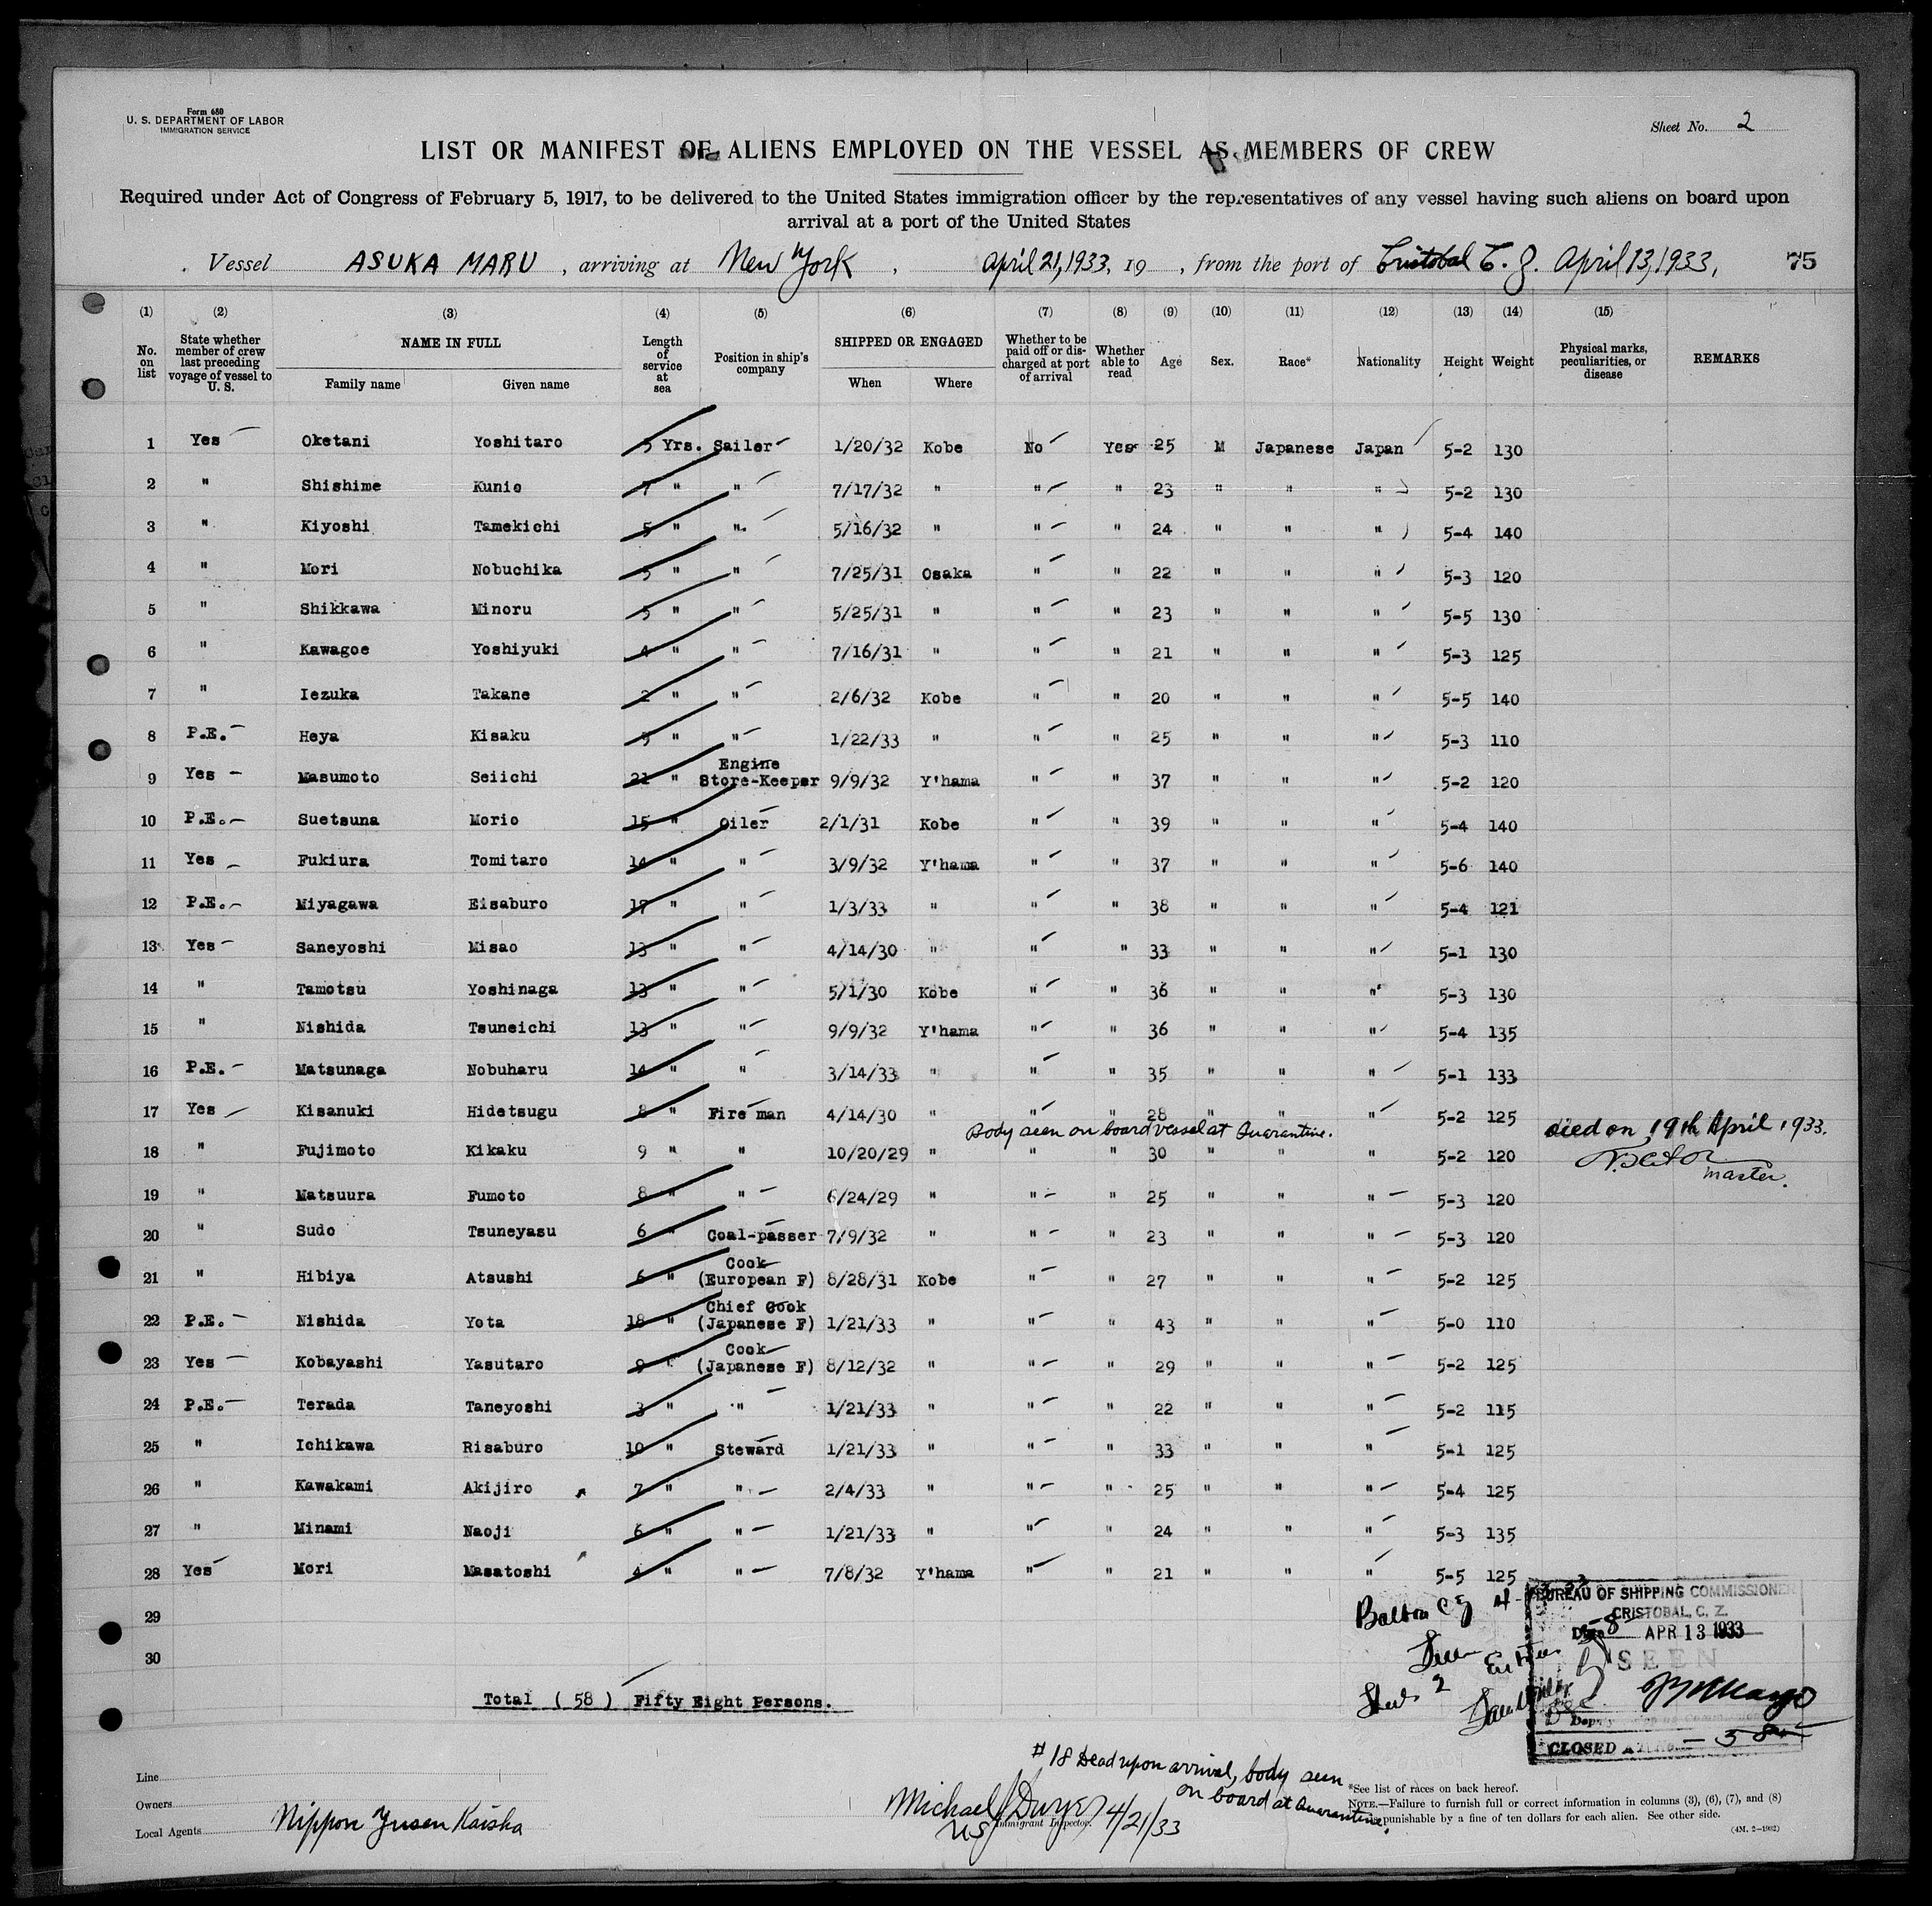 Form 680
U. S. DEPARTMENT OF LABOR
IMMIGRATION SERVICE
Sheet No. 2
LIST OR MANIFEST OF ALIENS EMPLOYED ON THE VESSEL AS MEMBERS OF CREW
Required under Act of Congress of February 5, 1917, to be delivered to the United States immigration officer by the representatives of any vessel having such aliens on board upon
arrival at a port of the United States
Vessel ASUKA MARU, arriving at New York, April 21, 1933, 19 , from the port of Cristobal C. Z. April 13, 1933, 75
(1) (2) (3) (4) (5) (6) (7) (8) (9) (10) (11) (12) (13) (14) (15)
No. on list | State whether member of crew last preceding voyage of vessel to U. S. | NAME IN FULL | Family name | Given name | Length of service at sea | Position in ship's company | SHIPPED OR ENGAGED | When | Where | Whether to be paid off or discharged at port of arrival | Whether able to read | Age | Sex. | Race* | Nationality | Height | Weight | Physical marks, peculiarities, or disease | REMARKS
1 Yes Oketani Yoshitaro 5 Yrs. Sailer 1/20/32 Kobe No Yes 25 M Japanese Japan 5-2 130
2 " Shishime Kunio 7 " " 7/17/32 " " " 23 " " " 5-2 130
3 " Kiyoshi Tamekichi 5 " " 5/16/32 " " " 24 " " " 5-4 140
4 " Mori Nobuchika 5 " " 7/25/31 Osaka " " 22 " " " 5-3 120
5 " Shikkawa Minoru 5 " " 5/25/31 " " " 23 " " " 5-5 130
6 " Kawagoe Yoshiyuki 4 " " 7/16/31 " " " 21 " " " 5-3 125
7 " Iezuka Takane 2 " " 2/6/32 Kobe " " 20 " " " 5-5 140
8 P.E. Heya Kisaku 5 " " 1/22/33 " " " 25 " " " 5-3 110
9 Yes Masumoto Seiichi 21 " Engine Store-Keeper 9/9/32 Y'hama " " 37 " " " 5-2 120
10 P.E. Suetsuna Morio 15 " Oiler 2/1/31 Kobe " " 39 " " " 5-4 140
11 Yes Fukiura Tomitaro 14 " " 3/9/32 Y'hama " " 37 " " " 5-6 140
12 P.E. Miyagawa Eisaburo 17 " " 1/3/33 " " " 38 " " " 5-4 121
13 Yes Saneyoshi Misao 13 " " 4/14/30 " " " 33 " " " 5-1 130
14 " Tamotsu Yoshinaga 13 " " 5/1/30 Kobe " " 36 " " " 5-3 130
15 " Nishida Tsuneichi 13 " " 9/9/32 Y'hama " " 36 " " " 5-4 135
16 P.E. Matsunaga Nobuharu 14 " " 3/14/33 " " " 35 " " " 5-1 133
17 Yes Kisanuki Hidetsugu 8 " Fire man 4/14/30 " " " 28 " " " 5-2 125
Body seen on board vessel at Quarantine. died on 19th April 1933.
18 " Fujimoto Kikaku 9 " " 10/20/29 " " " 30 " " " 5-2 120
master.
19 " Matsuura Fumoto 8 " " 6/24/29 " " " 25 " " " 5-3 120
20 " Sudo Tsuneyasu 6 " Coal-passer 7/9/32 " " " 23 " " " 5-3 120
21 " Hibiya Atsushi 6 " Cook (European F) 8/28/31 Kobe " " 27 " " " 5-2 125
22 P.E. Nishida Yota 18 " Chief Cook (Japanese F) 1/21/33 " " " 43 " " " 5-0 110
23 Yes Kobayashi Yasutaro 9 " Cook (Japanese F) 8/12/32 " " " 29 " " " 5-2 125
24 P.E. Terada Taneyoshi 3 " " 1/21/33 " " " 22 " " " 5-2 115
25 " Ichikawa Risaburo 10 " Steward 1/21/33 " " " 33 " " " 5-1 125
26 " Kawakami Akijiro 7 " " 2/4/33 " " " 25 " " " 5-4 125
27 " Minami Naoji 6 " " 1/21/33 " " " 24 " " " 5-3 135
28 Yes Mori Masatoshi 4 " " 7/8/32 Y'hama " " 21 " " " 5-5 125
29
30
Total ( 58 ) Fifty Eight Persons.
BUREAU OF SHIPPING COMMISSIONER
CRISTOBAL, C. Z.
APR 13 1933
SEEN
CLOSED
58
# 18 Dead upon arrival, body seen
on board at Quarantine.
Michael Dwyer 4/21/33
US Immigrant Inspector.
Line
Owners
Local Agents Nippon Yusen Kaisha
*See list of races on back hereof.
NOTE.—Failure to furnish full or correct information in columns (3), (6), (7), and (8)
is punishable by a fine of ten dollars for each alien. See other side.